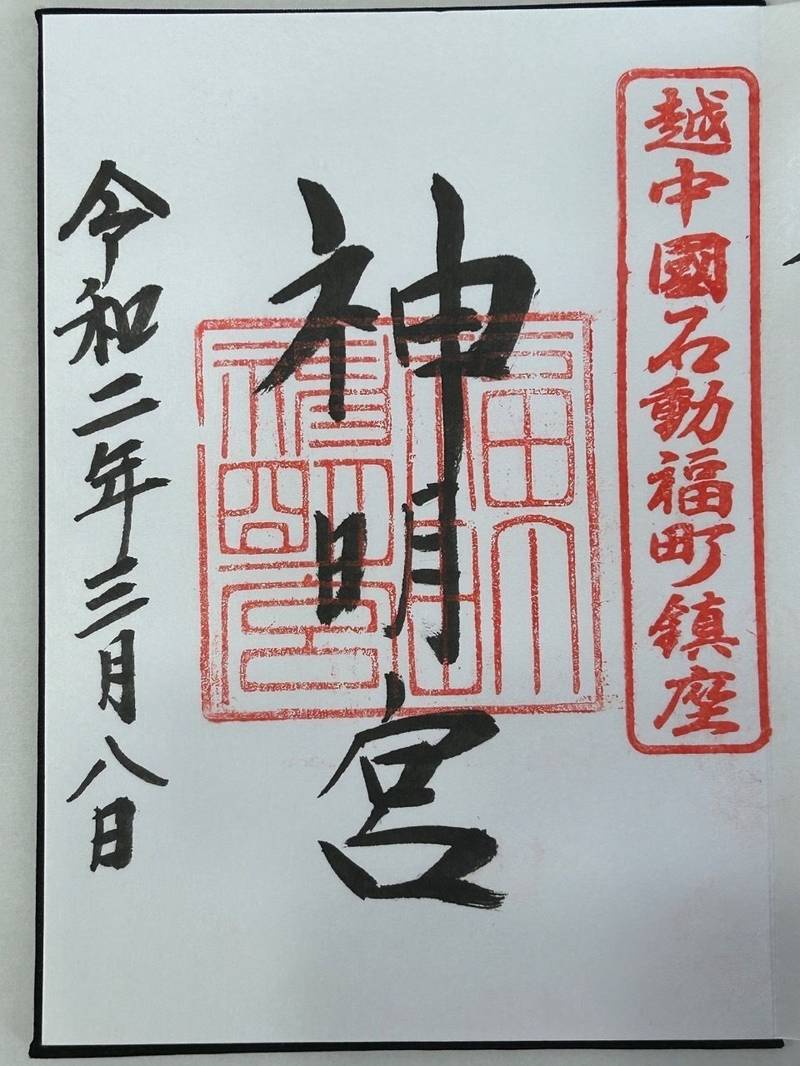 越中國石動福町鎮座
神明宮
令和二年三月八日